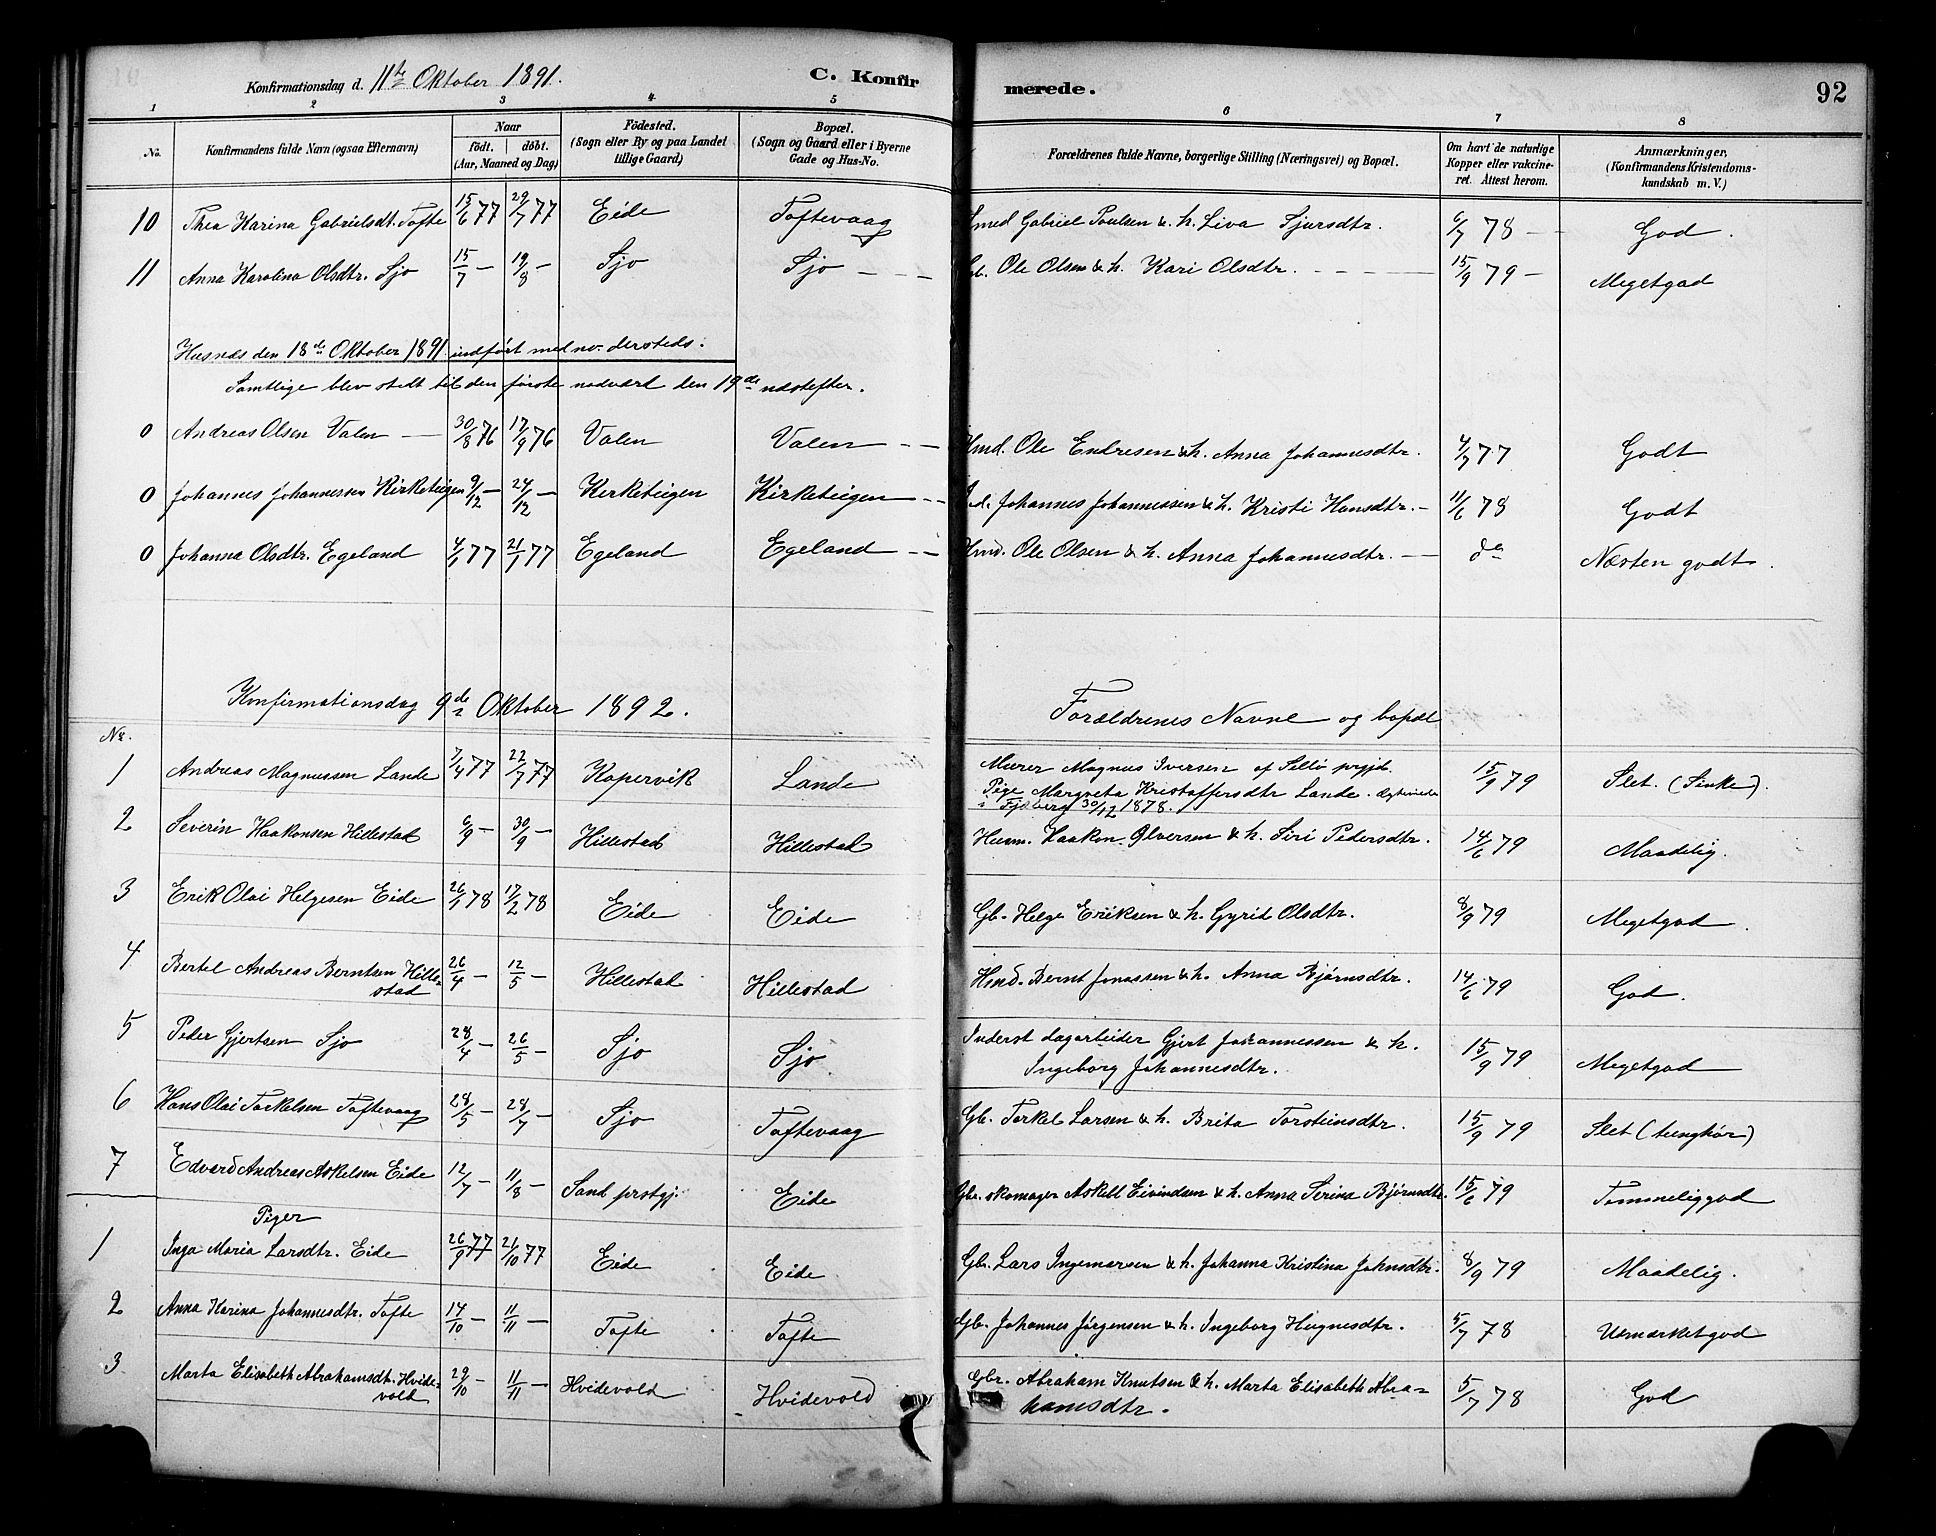 Konfirmationsdag d. 11te Oktober 1891. C. Konfirmerede. 92
1 2 3 4 5 6 7 8
No. Konfirmandens fulde Navn (ogsaa Efternavn) Naar født. døbt. (Aar, Maaned og Dag) Födested. (Sogn eller By og paa Landet tillige Gaard) Bopæl. (Sogn og Gaard eller i Byerne Gade og Hus-No.) Forældrenes fulde Navne, borgerlige Stilling (Næringsvei) og Bopæl. Om havt de naturlige Kopper eller vakcineret. Attest herom. Anmærkninger, (Konfirmandens Kristendomskundskab m. V.)
10 Thea Karina Gabrielsdt. Tofte 15/6 77 29/7 77 Eide Toftevaag Smed Gabriel Poulsen & h. Liva Sjursdtr. 6/7 78 — God.
11 Anna Karolina Olsdtr. Sjo 15/7 — 19/8 — Sjo Sjo — — — Gb. Ole Olsen & h. Kari Olsdtr. — — — — 15/9 79 — Megetgod
Husnæs den 18de Oktober 1891 indført med no. dersteds.
Samtlige blev stedt til den første nadvard den 19de næstefter.
0 Andreas Olsen Valen — 30/8 76 17/9 76 Valen Valen — — Hmd. Ole Endresen & h. Anna Johannesdtr. 4/7 77 Godt
0 Johannes Johannessen Kirketeigen 9/12 — 24/12 — Kerketeigen Kirketeigen — — Johannes Johannessen & h. Kristi Hansdtr. — 11/6 78 Godt
0 Johanna Olsdtr. Egeland 4/1 77 21/1 77 Egeland Egeland — — Hmd. Ole Olsen & h. Anna Johannesdtr. — do Næsten godt.
Konfirmationsdag 9de Oktober 1892. Forældrenes Navne og bopæl
No.
1 Andreas Magnussen Lande 7/4 77 22/7 77 Kopervik Lande Murer Magnus Iversen af prgjd. 15/9 79 Slet. (Sinke).
Pige Margreta Kristoffersdtr Lande.
i Fjelberg 30/12 1878.
2 Severin Haakonsen Hillestad 6/9 — 30/9 — Hillestad Hillestad Husm. Haakon Olversen & h. Siri Pedersdtr. 14/6 79 Maadelig.
3 Erik Olai Helgesen Eide 26/1 78 17/2 78 Eide Eide Gb. Helge Eriksen & h. Gyrid Olsdtr. 8/9 79 Megetgod.
4 Bertel Andreas Berntsen Hille- 26/4 — 12/5 — Hillestad Hillestad Hmd. Bernt Jonassen & h. Anna Bjørnsdtr. 14/6 79 God.
stad
5 Peder Gjertsen Sjo 28/4 — 26/5 — Sjo Sjo Inderst dagarbeider Gjert Johannessen & h. 15/9 79 Megetgod
Ingeborg Johannesdtr.
6 Hans Olai Torkelsen Toftevaag 28/5 — 28/7 — Sjo Toftevaag Gb. Torkel Larsen & h. Brita Torsteinsdtr. 15/9 79 Slet (tunghør)
7 Edvard Andreas Askelsen Eide 12/7 — 11/8 — Sand prstgj. Eide Gbr. skomager Askell Eivindsen & h. Anna Serina Bjørnsdtr. 15/6 79 Temmeliggod
Piger
1 Inga Maria Larsdtr. Eide 26/9 77 21/10 77 Eide Eide Gbr. Lars Ingemarsen & h. Johanna Kristina Johnsdtr. 8/9 79 Maadelig.
2 Anna Karina Johannesdtr. Tofte 14/10 — 11/11 — Tofte Tofte Gb. Johannes Jørgensen & h. Ingeborg Hognesdtr. 5/7 78 Udmærketgod
3 Marta Elisabeth Abrahamsdt. Hvide- 29/10 — 11/11 — Hvidevold Hvidevold Gbr. Abraham Knutsen & h. Marta Elisabeth Abra- 5/7 78 God
vold hamsdtr.